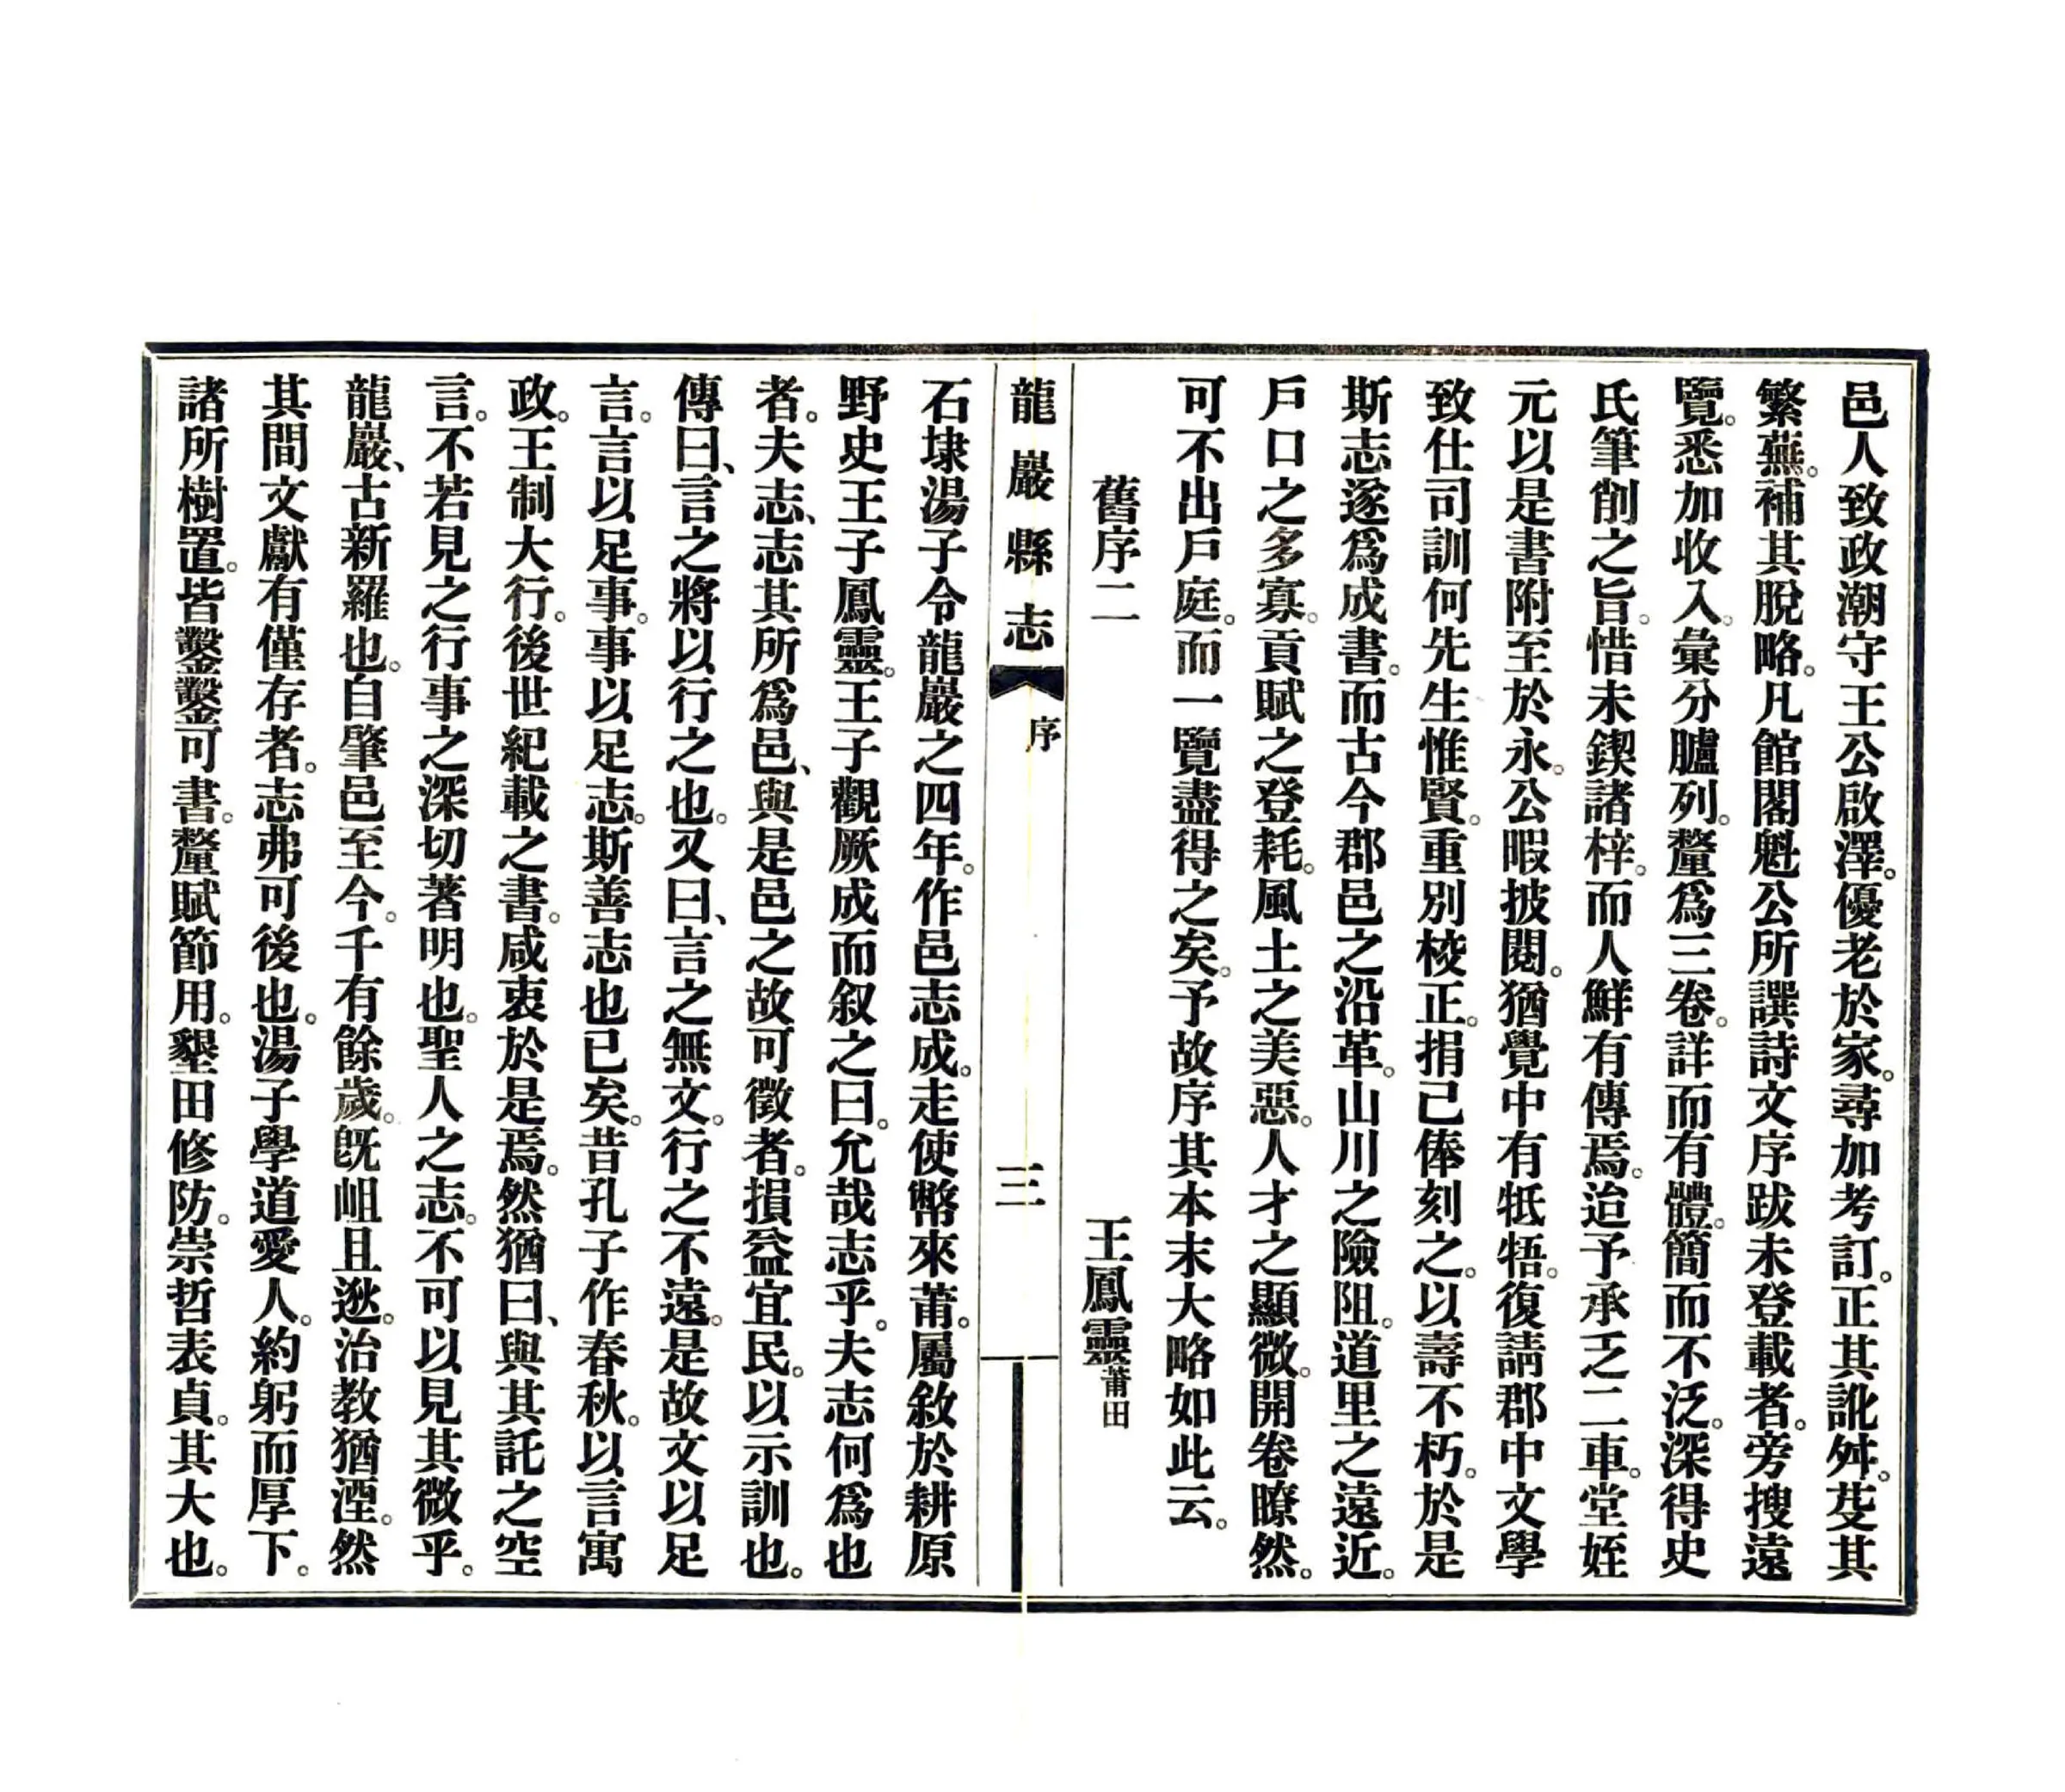 邑人致政潮守王公啟澤。優老於家。尋加考訂。正其訛舛。芟其
繁蕪。補其脫略。凡館閣魁公所譔詩文序跋未登載者。旁搜遠
覽。悉加收入。彙分臚列。釐爲三卷。詳而有體。簡而不泛。深得史
氏筆削之旨。惜未鍥諸梓。而人鮮有傳焉。迨予承乏二車。堂姪
元以是書附至於永。公暇披閱。猶覺中有牴牾。復請郡中文學
致仕司訓何先生惟賢。重別校正。捐己俸刻之。以壽不朽。於是
斯志遂爲成書。而古今郡邑之沿革。山川之險阻。道里之遠近。
戶口之多寡。貢賦之登耗。風土之美惡。人才之顯微。開卷瞭然。
可不出戶庭。而一覽盡得之矣。予故序其本末大略如此云。
舊序二　王鳳靈莆田
龍巖縣志　序　三
石埭湯子令龍巖之四年。作邑志成。走使幣來莆。屬敘於耕原
野史王子鳳靈。王子觀厥成而叙之曰。允哉志乎。夫志何爲也
者。夫志、志其所爲邑、與是邑之故可徵者。損益宜民。以示訓也。
傳曰、言之將以行之也。又曰、言之無文。行之不遠。是故文以足
言。言以足事。事以足志。斯善志也已矣。昔孔子作春秋。以言寓
政。王制大行。後世紀載之書。咸衷於是焉。然猶曰、與其託之空
言。不若見之行事之深切著明也。聖人之志。不可以見其微乎。
龍巖、古新羅也。自肇邑至今。千有餘歲。旣岨且逖。治教猶湮。然
其間文獻有僅存者。志弗可後也。湯子學道愛人。約躬而厚下。
諸所樹置。皆鑿鑿可書。釐賦節用。墾田修防。崇哲表貞。其大也。